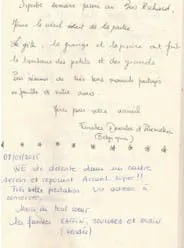 Superbe semaine passée au Bois Richard,
Même le soleil était de la partie.
Le gîte, la grange et la piscine ont fait
le bonheur des petits et des grands.
Que de très bons moments partagés
en famille et entre amis.
Merci pour votre accueil
Familles
(Belgique)
WE de détente dans un cadre
serein et reposant. Accueil super!!
Très belle prestation. Un adresse à
conserver.
Merci de tout coeur.
Les familles
(Vendée)